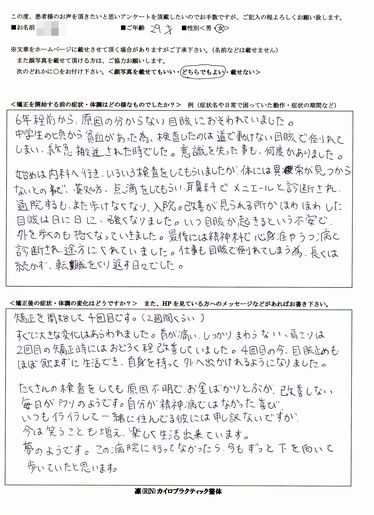 この度、患者様のお声を頂きたいと思いアンケートを頂戴したいのでお手数ですが、ご記入の程よろしくお願い致します。
■お名前 ■ご年齢 29才 ■性別＜男・女＞
※文章をホームページに載せさせて頂く場合がありますがご了承下さい。（名前などは載せません）
また顔写真を載せて頂ける方は、ご協力お願いします。
次のどれかに○をお付け下さい。＜顔写真を載せてもいい・どちらでもよい・載せない＞
＜矯正を開始する前の症状・体調はどの様なものでしたか？＞ 例（症状名や日常で困っていた動作・症状の期間など）
6年程前から、原因の分からない目眩におそわれていました。
中学生の頃から貧血があった為、検査したのは道で動けない目眩で倒れて
しまい、救急搬送された時でした。意識を失った事も、何度かありました。
始めは内科へ行き、いろいろ検査をしてもらいましたが、体には異常が見つから
ないとの事で、薬処方、点滴をしてもらい、耳鼻科でメニエールと診断され、
通院するも、また歩けなくなり、入院。改善が見られる所かほわほわした
目眩は日に日に、強くなりました。いつ目眩が起きるという不安で、
外を歩くのも恐くなっていきました。最後には精神科で心身症やうつ病と
診断され、途方にくれていました。仕事も目眩で倒れてしまう為、長くは
続かず、転職をくり返す日々でした。
＜矯正後の症状・体調の変化はどうですか？＞ また、HPを見ている方へのメッセージなどがあればお書き下さい。
矯正を開始して4回目です。（2週間くらい）
すぐに大きな変化はあらわれました。首が痛い、しっかりまわらない、肩こりは
2回目の矯正時にはおどろく程改善していました。4回目の今、目眩止めも
ほぼ飲まずに生活でき、自身を持って外へ出かけれるようになりました。
たくさんの検査をしても原因不明で、お金ばかりとぶが、改善しない
毎日がウソのようです。自分が精神病ではなかった喜び
いつもイライラして一緒に住んでる彼には申し訳ないですが、
今は笑うことも増え、楽しく生活出来ています。
夢のようです。この病院に行ってなかったら今もずっと下を向いて
歩いていたと思います。
凛（RIN）カイロプラクティック整体